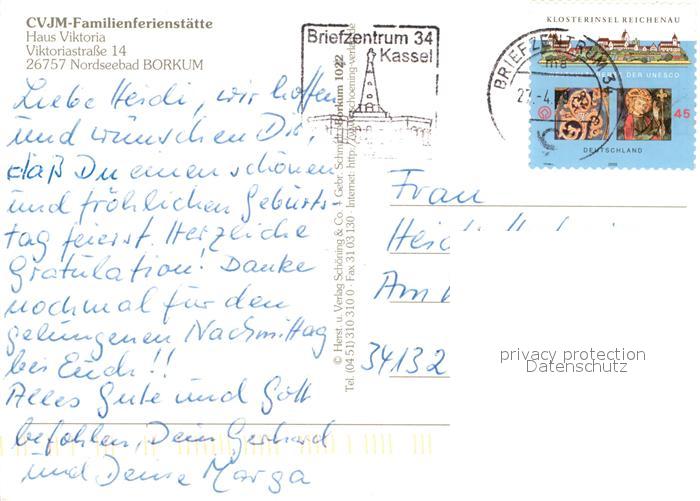 CVJM-Familienferienstätte
Haus Viktoria
Viktoriastraße 14
26757 Nordseebad BORKUM
Liebe Heidi, wir hoffen
und wünschen Dir,
daß Du einen schönen
und fröhlichen Geburts-
tag feierst. Herzliche
Gratulation! Danke
nochmal für den
gelungenen Nachmittag
bei Euch!!
Alles Gute und Gott
befohlen, Dein Gerhard
und Deine Marga
Briefzentrum 34
Kassel
© Herst. u. Verlag Schöning & Co. + Gebr. Schmidt Borkum 1022
Tel. (04 51) 310 310 0 · Fax 31 03 130 · Internet: http://www.schoening-verlag.de
KLOSTERINSEL REICHENAU
DER UNESCO
45
DEUTSCHLAND
BRIEFZENTRUM 34
ma
Frau
Heid
Am
34132
privacy protection
Datenschutz